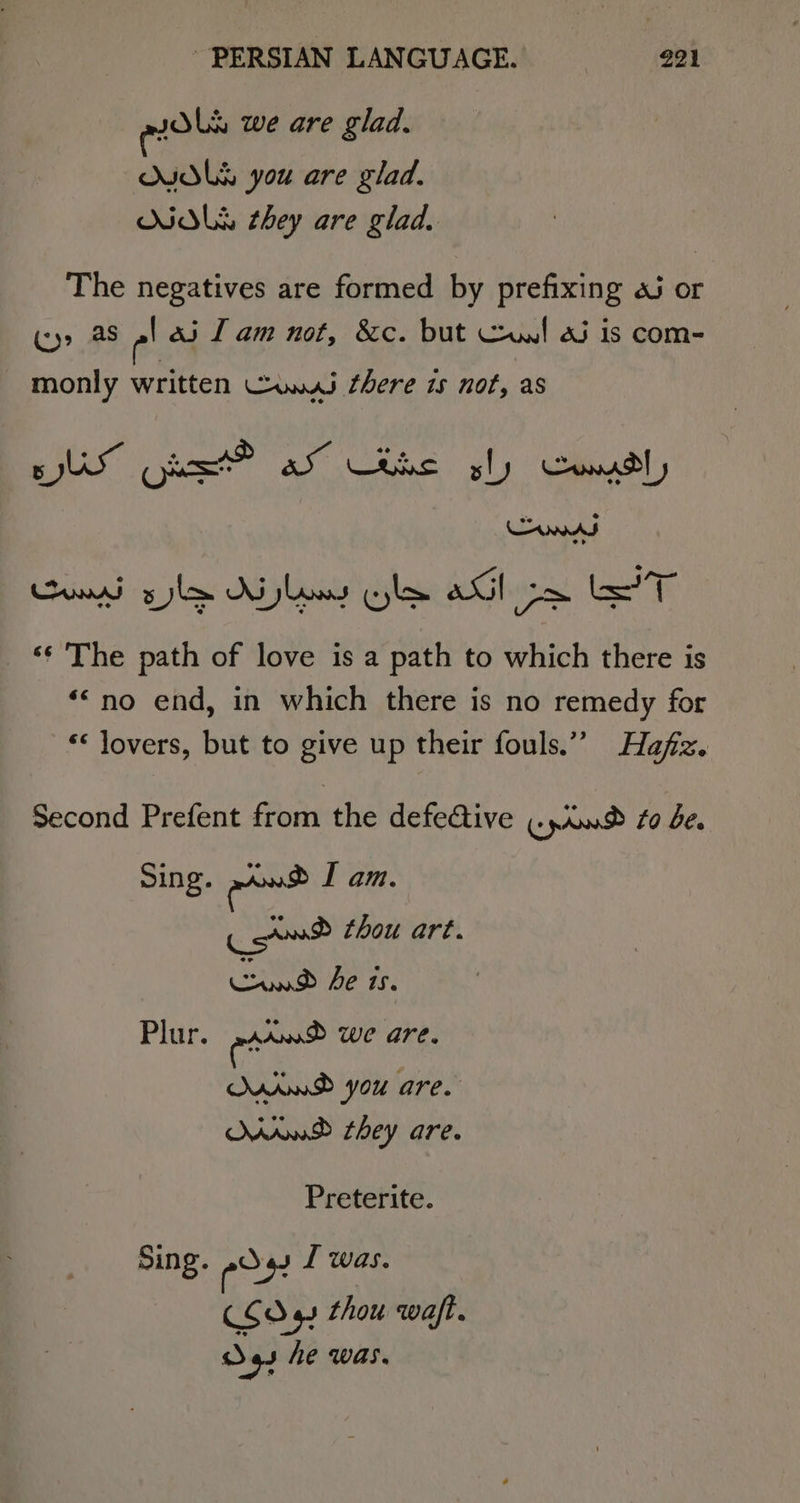 PERSIAN LANGUAGE. 221
شادیم we are glad.
شادید you are glad.
شادند they are glad.
The negatives are formed by prefixing نه or
ن, as نه ام I am not, &c. but نه است is com-
monly written نیست there is not, as
راهیست راه عشق که هیچش کناره
نیست
آنجا جز انکه جان بسپارند چاره نیست
“ The path of love is a path to which there is
“ no end, in which there is no remedy for
“ lovers, but to give up their ſouls.” Hafiz.
Second Preſent from the defective هستن to be.
Sing. هستم I am.
هستی thou art.
هست he is.
Plur. هستیم we are.
هستید you are.
هستند they are.
Preterite.
Sing. بودم I was.
بودی thou waſt.
بود he was.